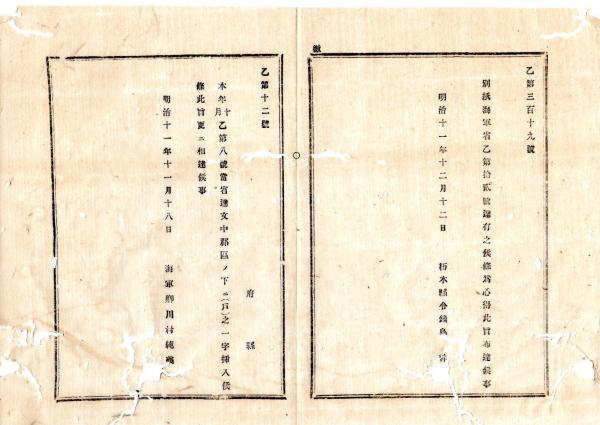 徽
乙第三百十九號
別紙海軍省乙第拾貳號達有之候條爲心得此旨布達候事
明治十一年十二月十二日
栃木縣令鍋島 幹
乙第十二號
府縣
本年十月乙第八號當省達文中郡區ノ下ニ(戸)之一字挿入候
條此旨更ニ相達候事
明治十一年十一月十八日
海軍卿川村純義